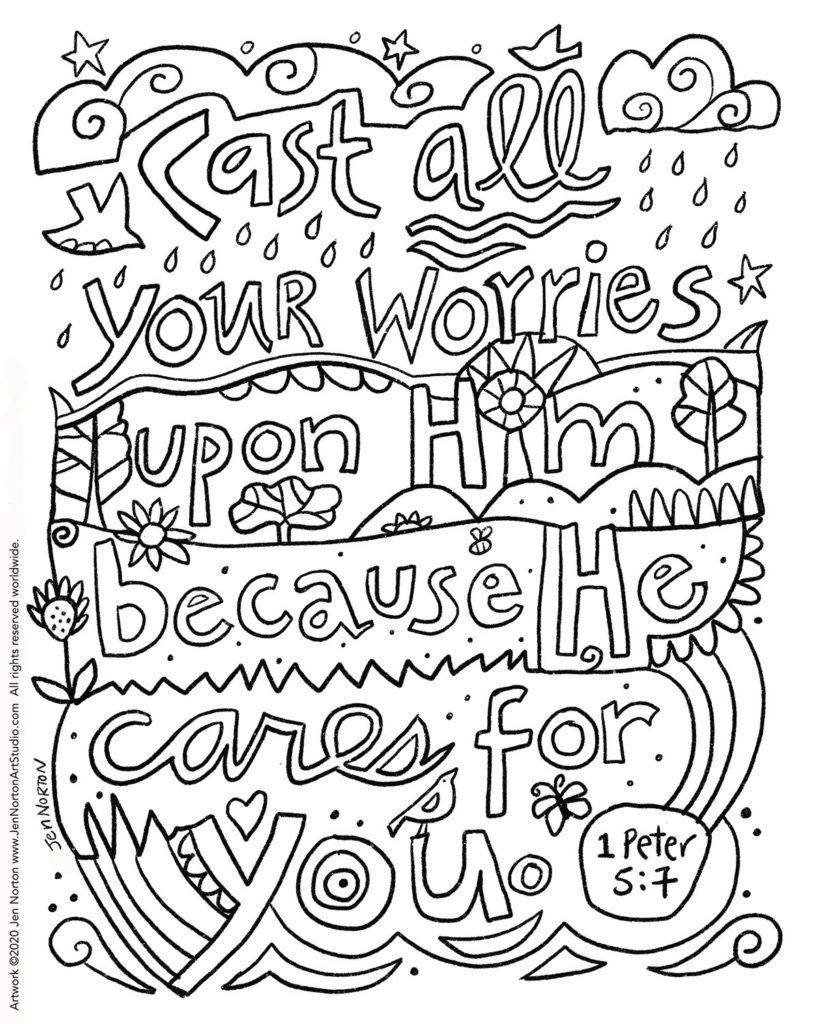 Cast all
your Worries
upon Him
because He
cares for
you.
1 Peter
5:7
Jen Norton
Artwork ©2020 Jen Norton www.JenNortonArtStudio.com All rights reserved worldwide.